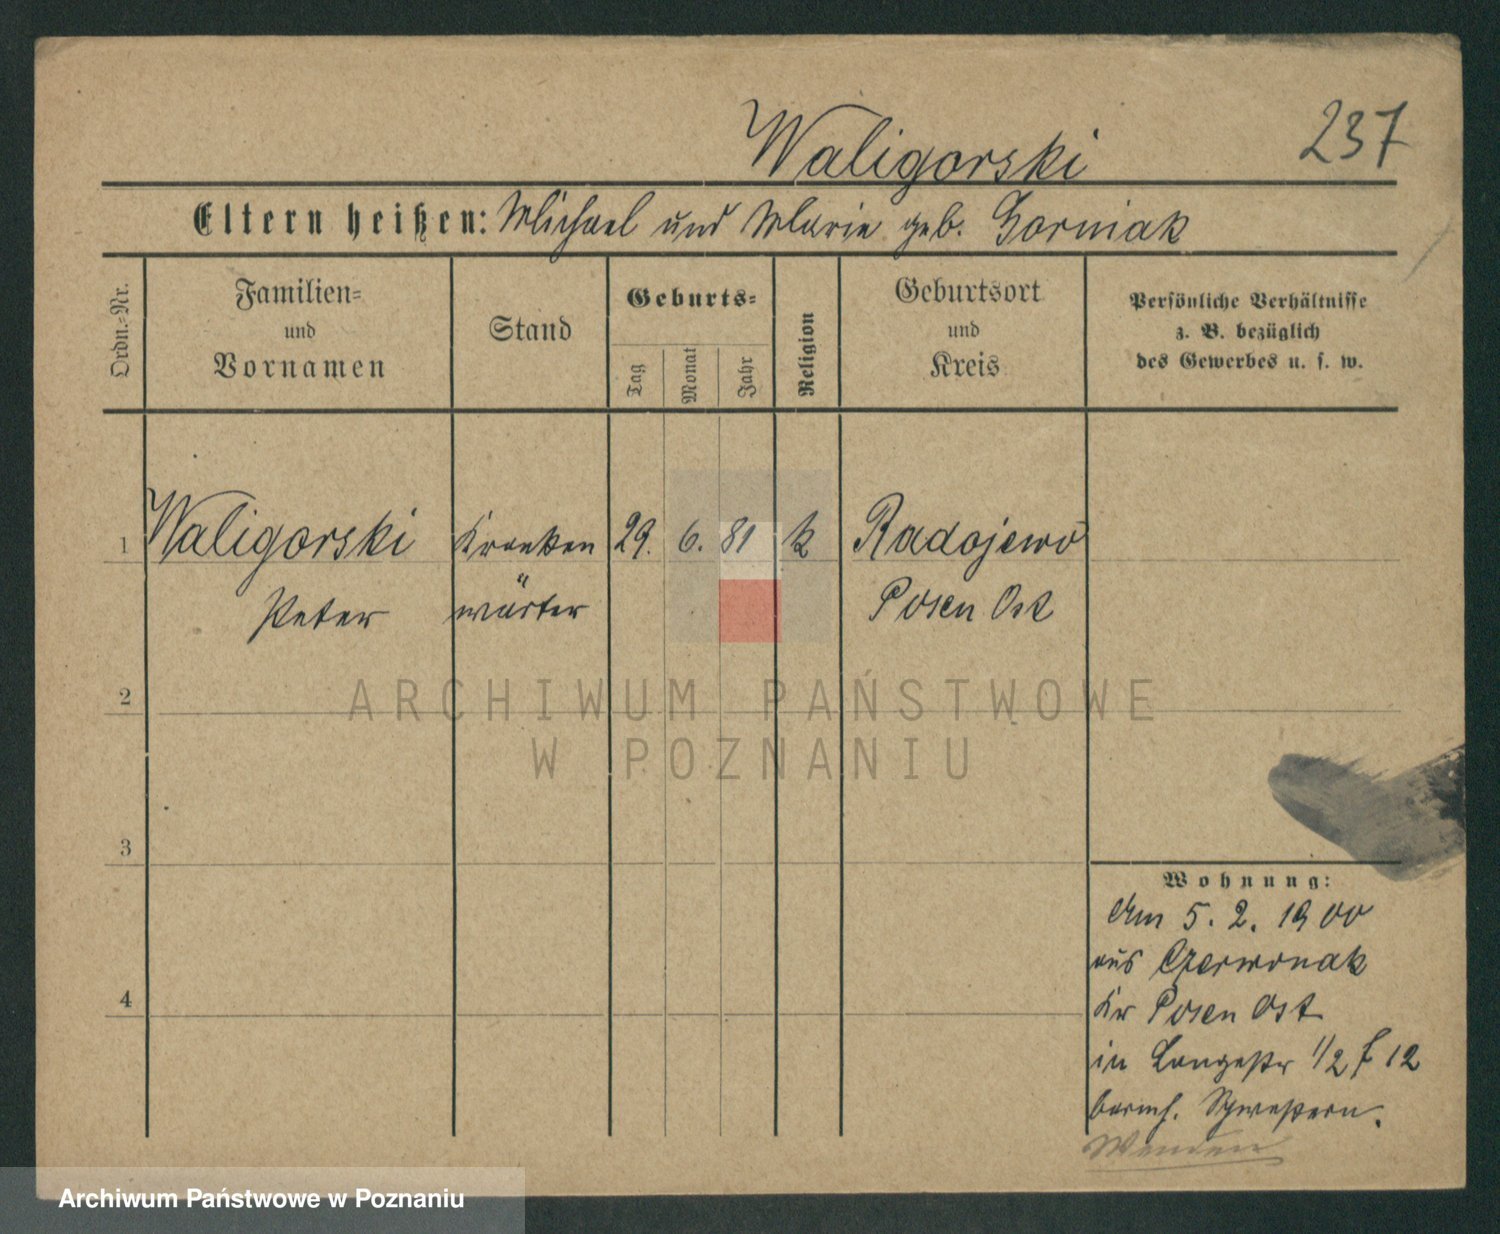 Waligorski
237
Eltern heißen: Michael und Marie geb. Gorniak
Ordn.-Nr.
Familien-
und
Vornamen
Stand
Geburts-
Tag
Monat
Jahr
Religion
Geburtsort
und
Kreis
Persönliche Verhältnisse
z. B. bezüglich
des Gewerbes u. s. w.
1 Waligorski Kranken 29. 6. 81 k Radojewo
Peter wärter Posen Ost
2
ARCHIWUM PAŃSTWOWE
W POZNANIU
3
Wohnung:
Am 5. 2. 1900
aus Czerwonak
4
Kr Posen Ost
in Langestr 1/2 12
barmh. Schwestern.
Wenden
Archiwum Państwowe w Poznaniu